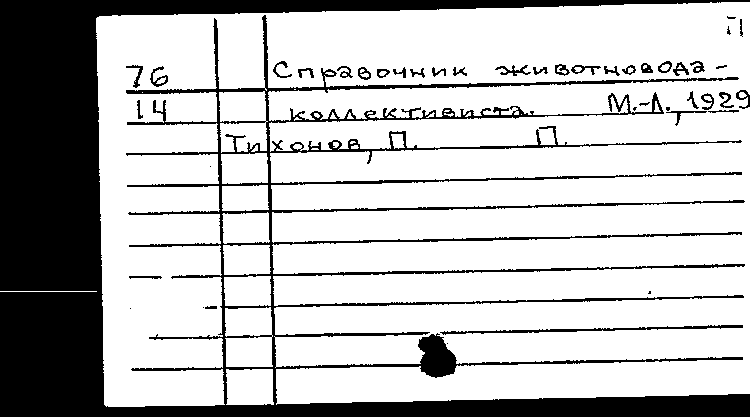 П
76 Справочник животновода-
14 коллективиста. М.-Л., 1929
Тихонов, П. П.